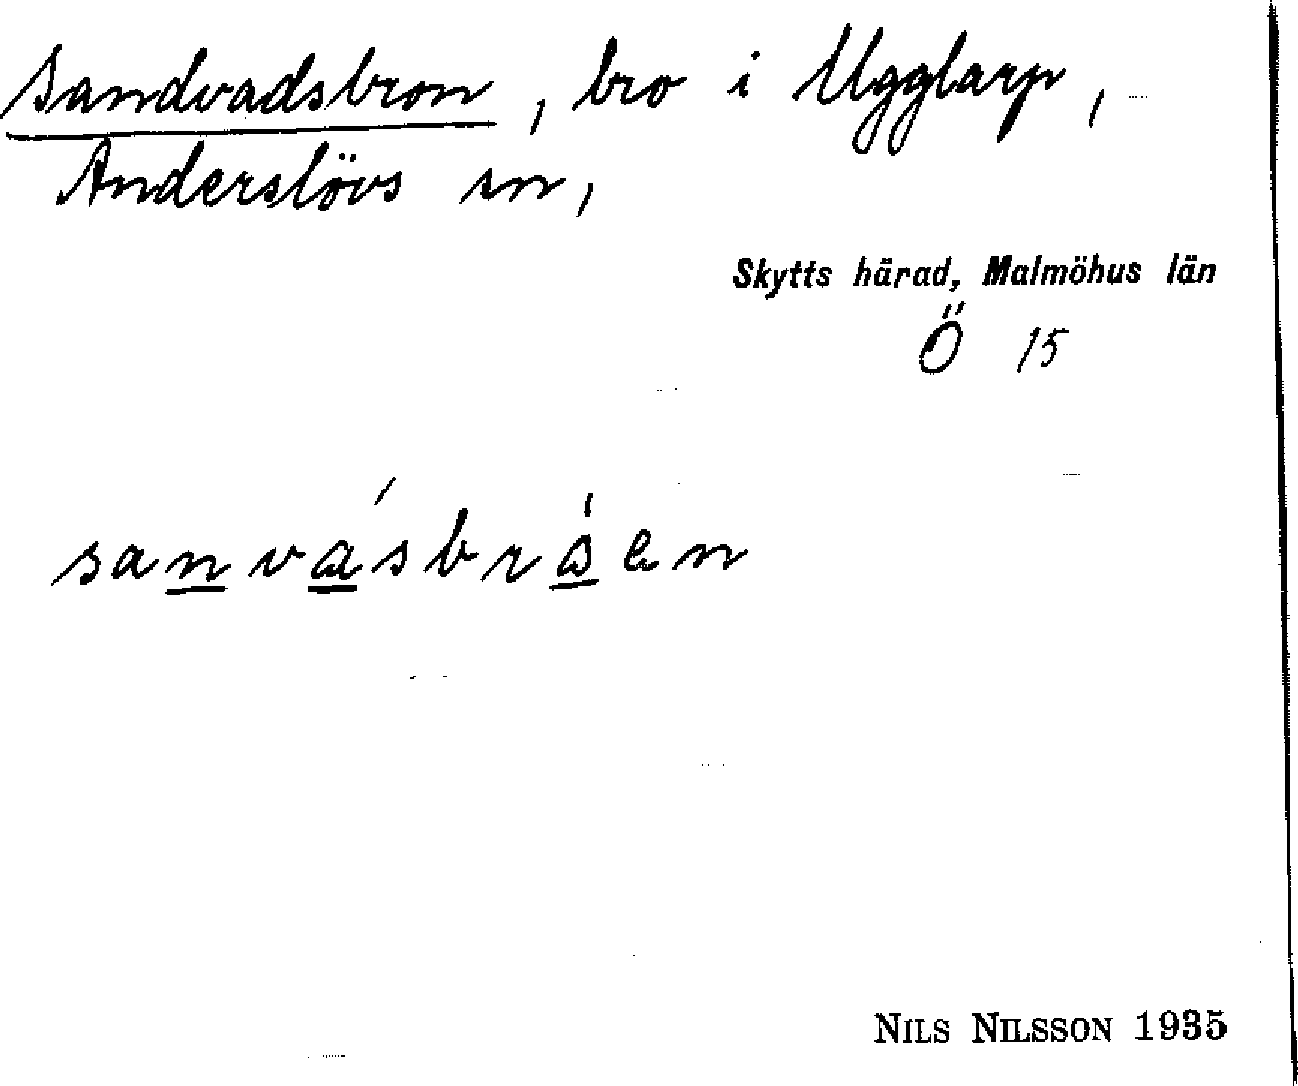 Sandvadsbron, bro i Ugglarp,
Anderslövs sn,
Skytts härad, Malmöhus län
Ö 15
NILS NILSSON 1935